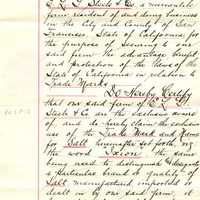 E. L. G. Steele & Co. a mercantile
firm, resident of and doing business
in the City and County of San
Francisco, State of California for
the purpose of securing to our
said firm the advantage benefit
and protection of the laws of the
State of California in relation to
Trade Marks
Do Hereby Certify
that our said firm of E. L. G.
Steele & Co are the exclusive owners
of, and do hereby claim the exclusive
use of the Trade Mark and Name
for Salt hereinafter set forth, viz:
the word the same
being used to distinguish & designate
a particular brand or quality of
Salt manufactured imported or
dealt in by our said firm, it